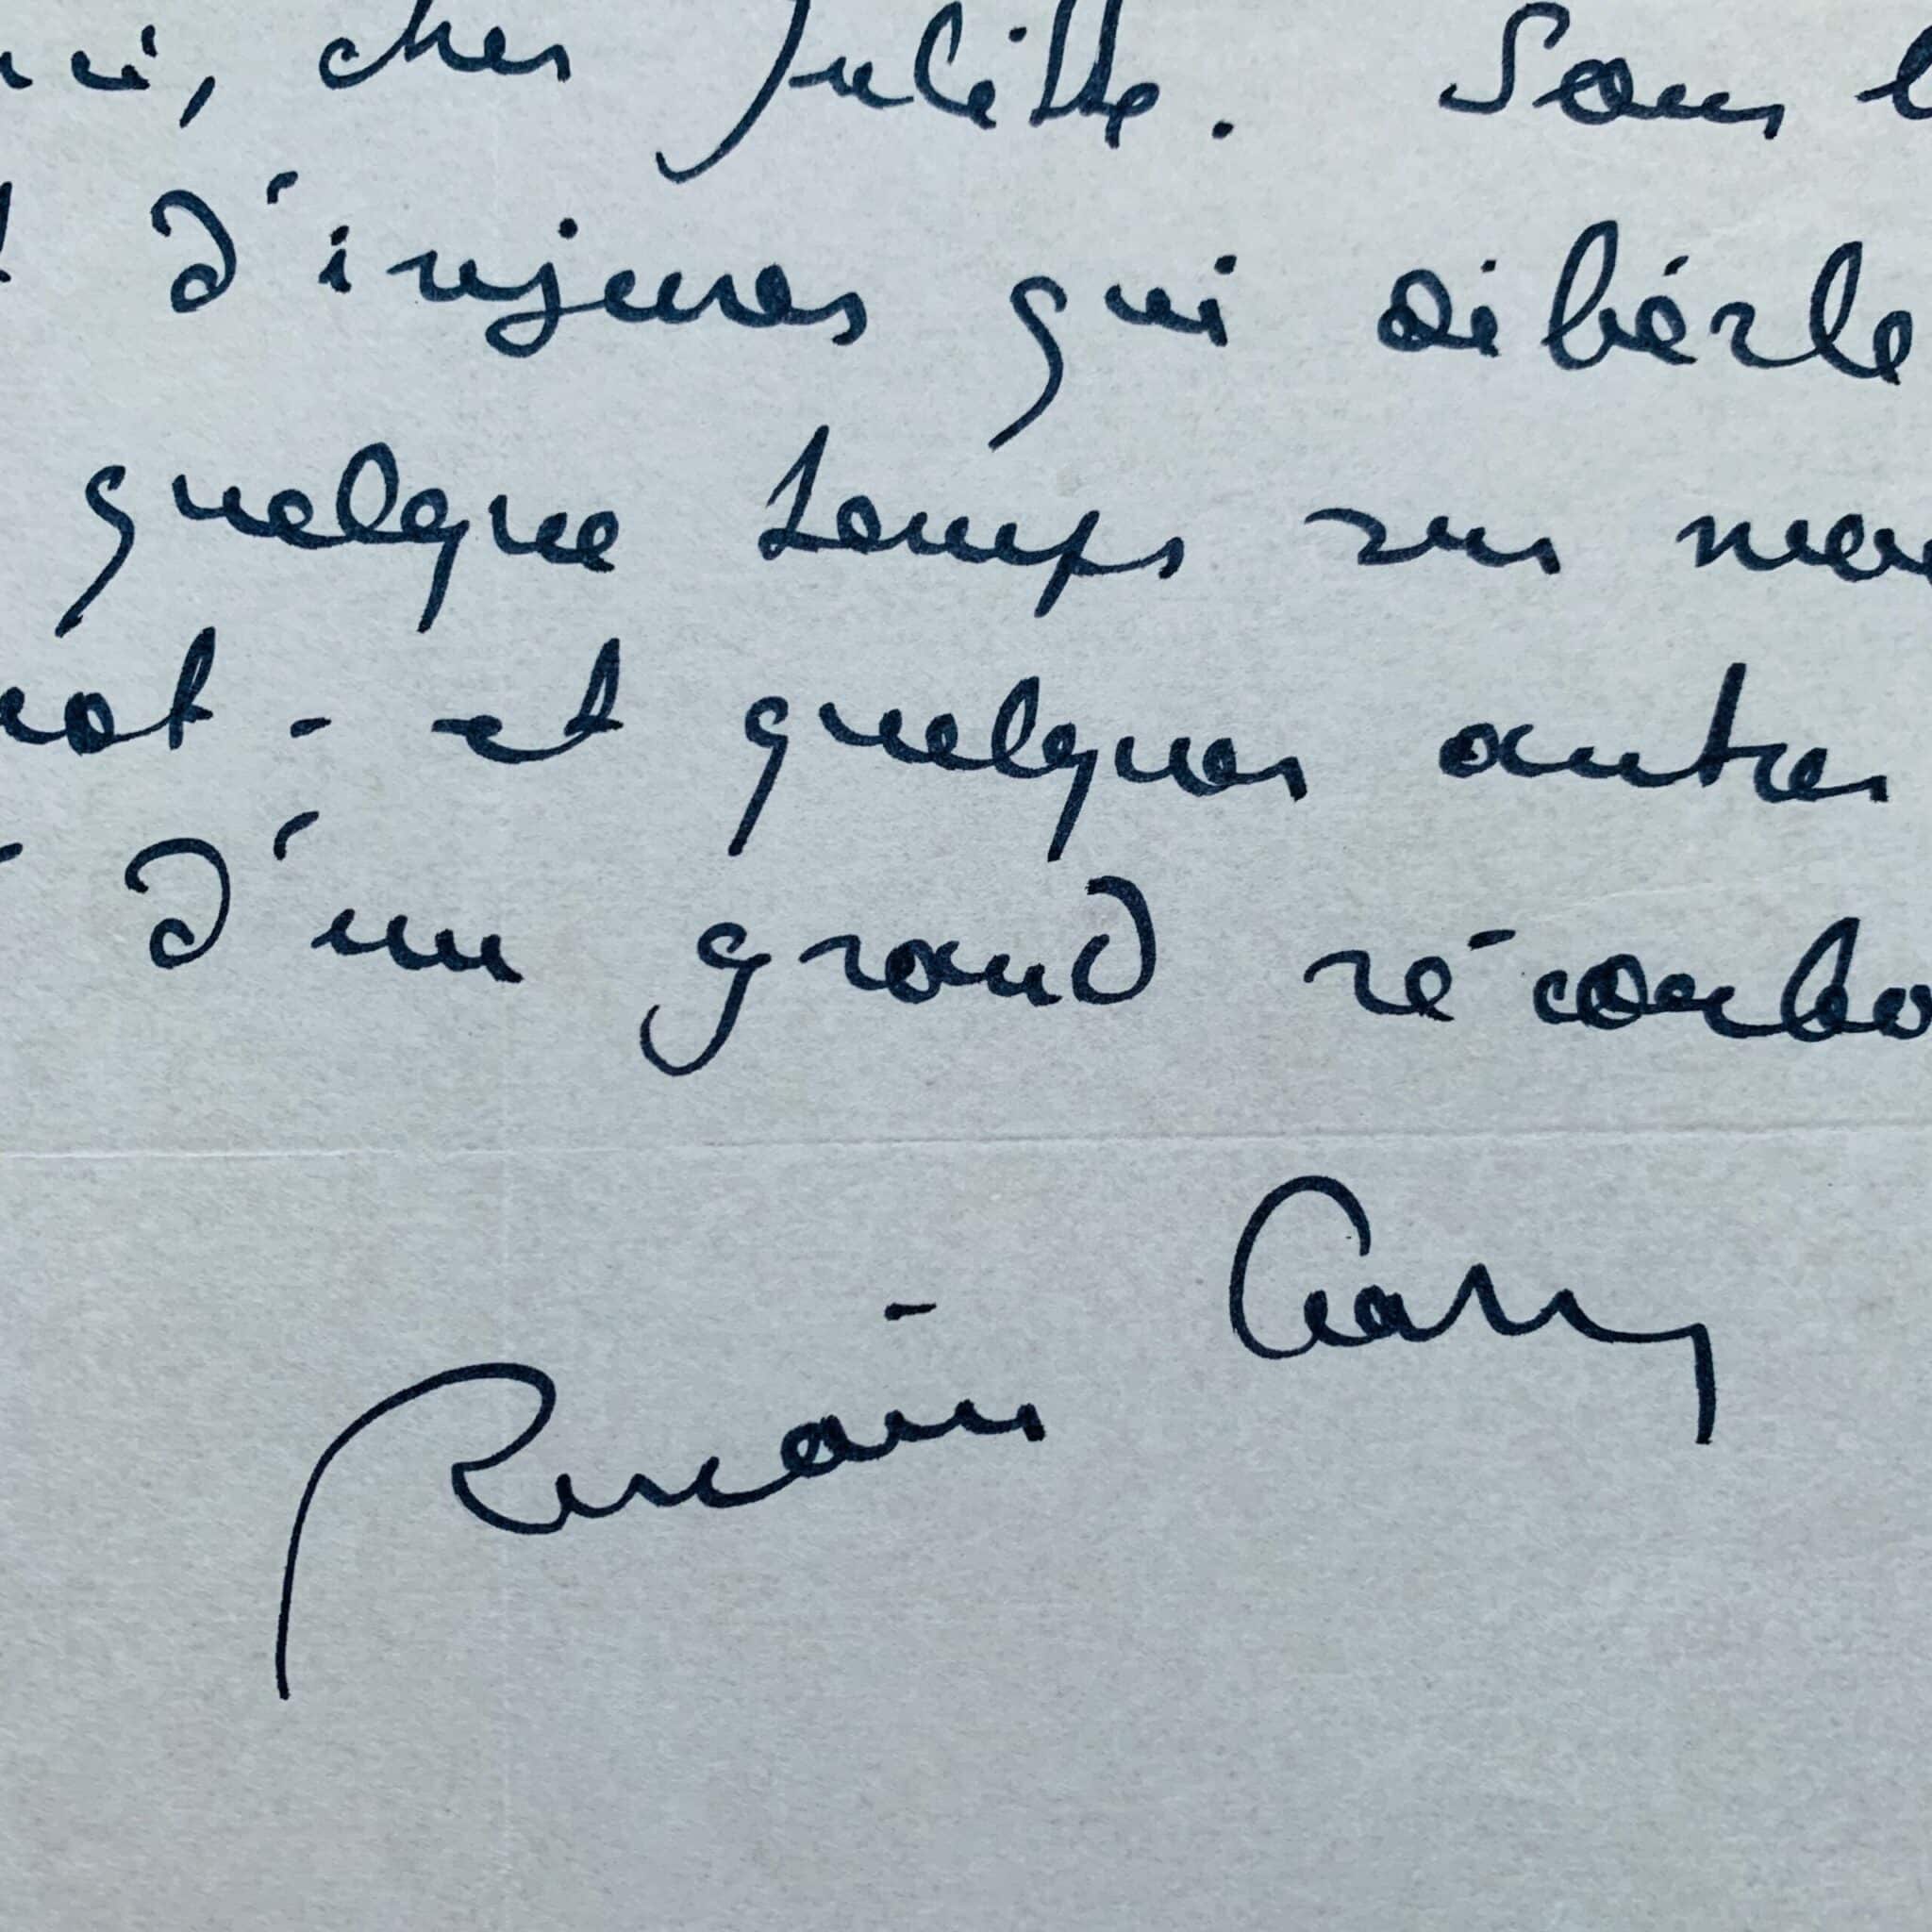 cher Juliette. Sous l
d'injures qui déferle
quelque temps sur mo
mot - et quelques autres
d'un grand réconfo
Romain Gary